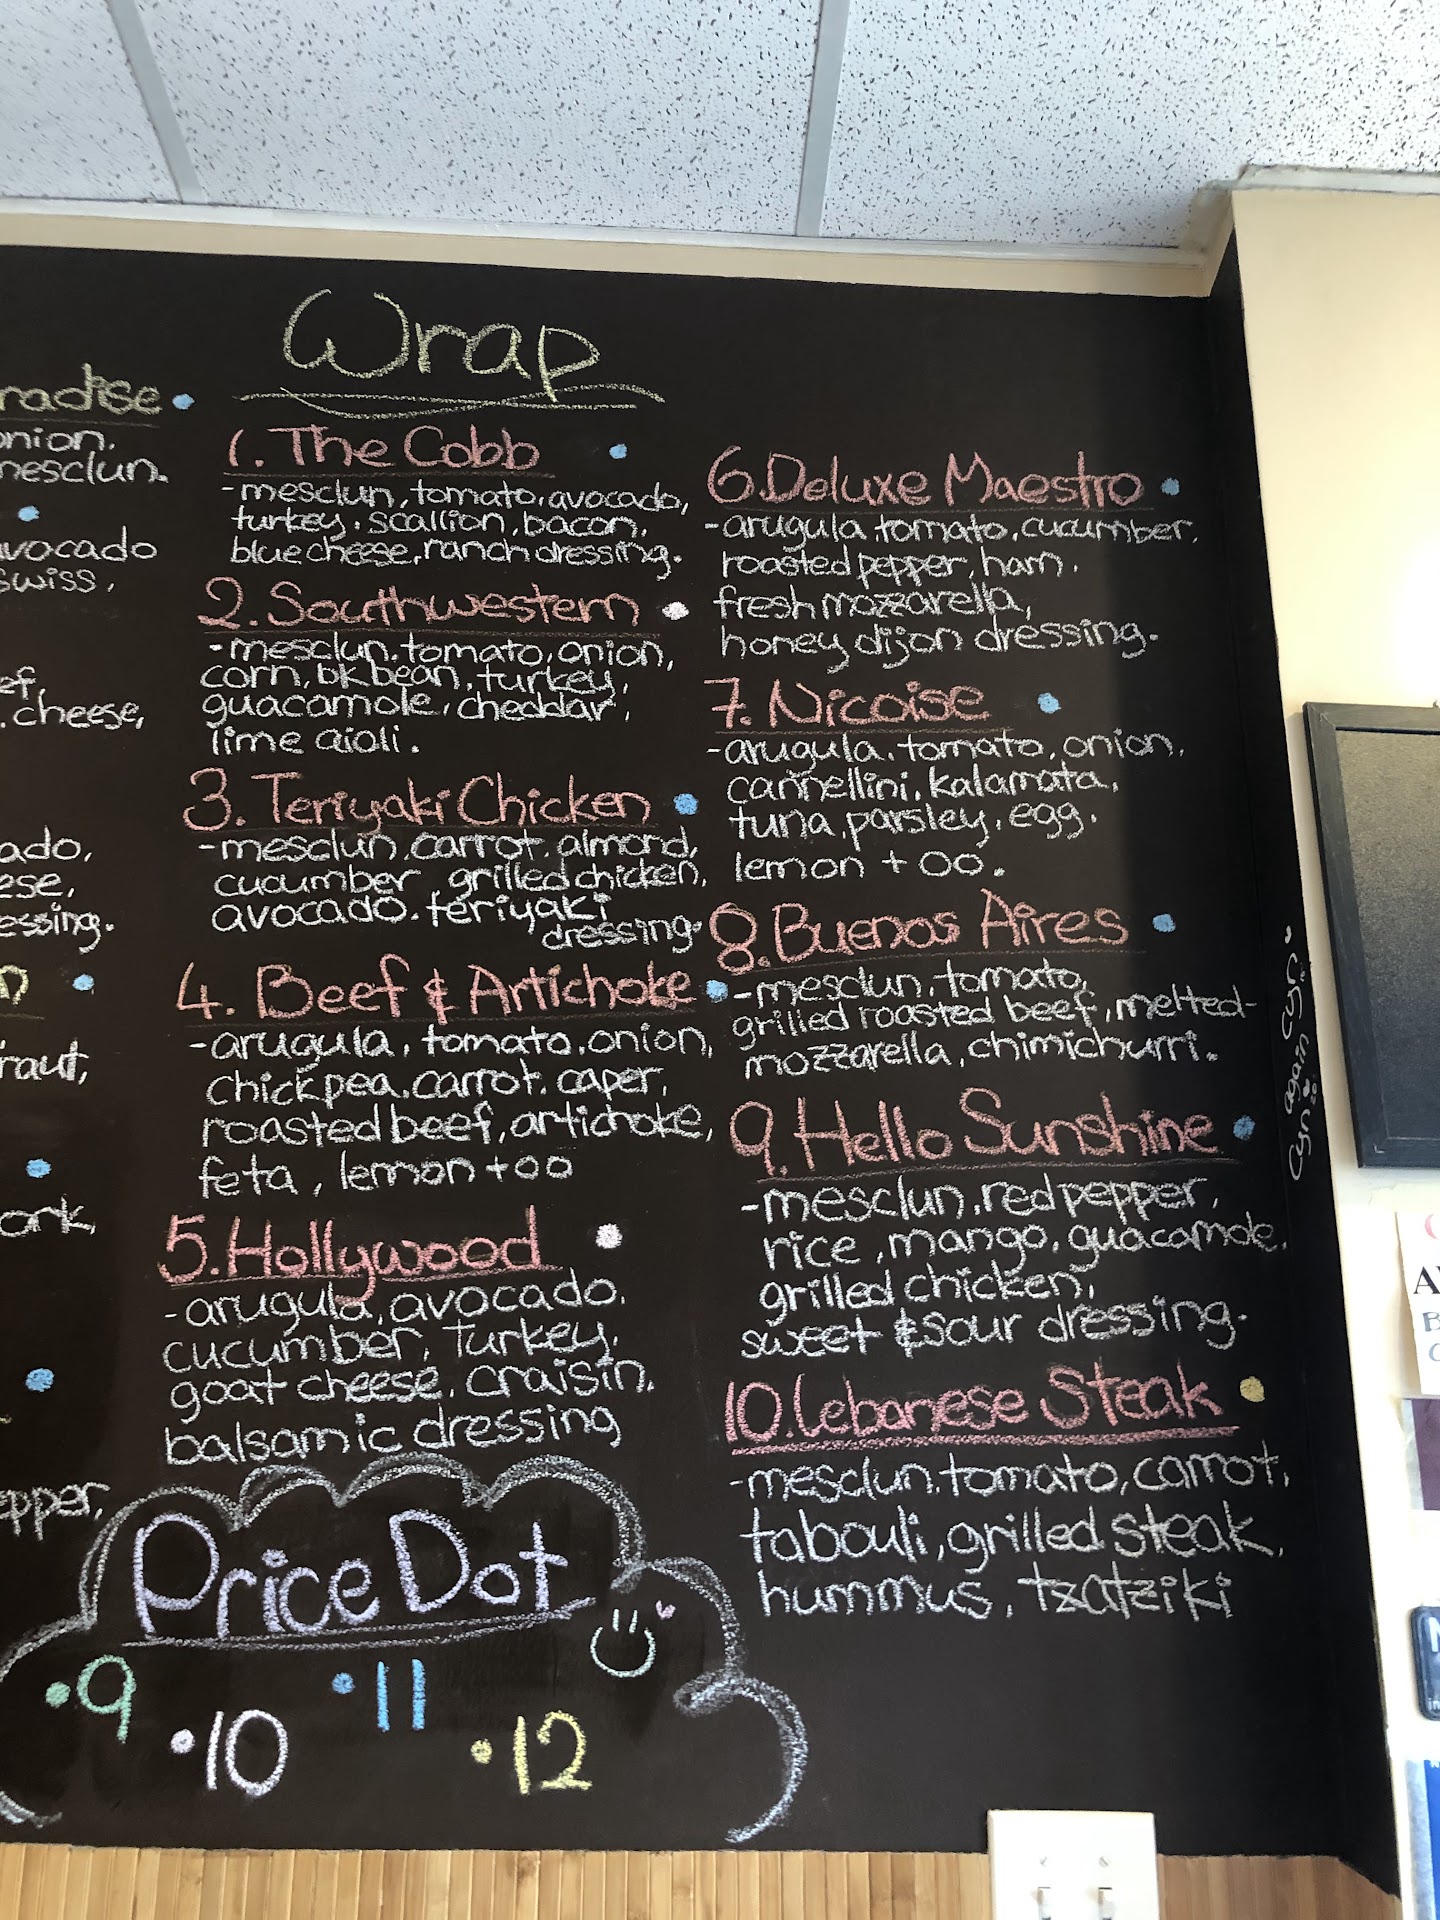 radise
onion.
mesclun.
avocado
swiss,
ef,
. cheese,
ado,
ese,
essing.
n
raut,
ork,
epper,
Wrap
1. The Cobb
-mesclun, tomato, avocado,
turkey, scallion, bacon,
blue cheese, ranch dressing.
2. Southwestern
-mesclun, tomato, onion,
corn, bk bean, turkey,
guacamole, cheddar,
lime aioli.
3. Teriyaki Chicken
-mesclun, carrot, almond,
cucumber, grilled chicken,
avocado, teriyaki
dressing.
4. Beef & Artichoke
-arugula, tomato, onion,
chickpea, carrot, caper,
roasted beef, artichoke,
feta, lemon + oo
5. Hollywood
-arugula, avocado,
cucumber, turkey,
goat cheese, craisin,
balsamic dressing
6. Deluxe Maestro
-arugula, tomato, cucumber,
roasted pepper, ham,
fresh mozzarella,
honey dijon dressing.
7. Nicoise
-arugula, tomato, onion,
cannellini, kalamata,
tuna, parsley, egg,
lemon + oo.
8. Buenos Aires
-mesclun, tomato,
grilled roasted beef, melted-
mozzarella, chimichurri.
9. Hello Sunshine
-mesclun, red pepper,
rice, mango, guacamole,
grilled chicken,
sweet & sour dressing.
10. Lebanese Steak
-mesclun, tomato, carrot,
tabouli, grilled steak,
hummus, tzatziki
Price Dot
•9
•10
•11
•12
Cyn again Cyn